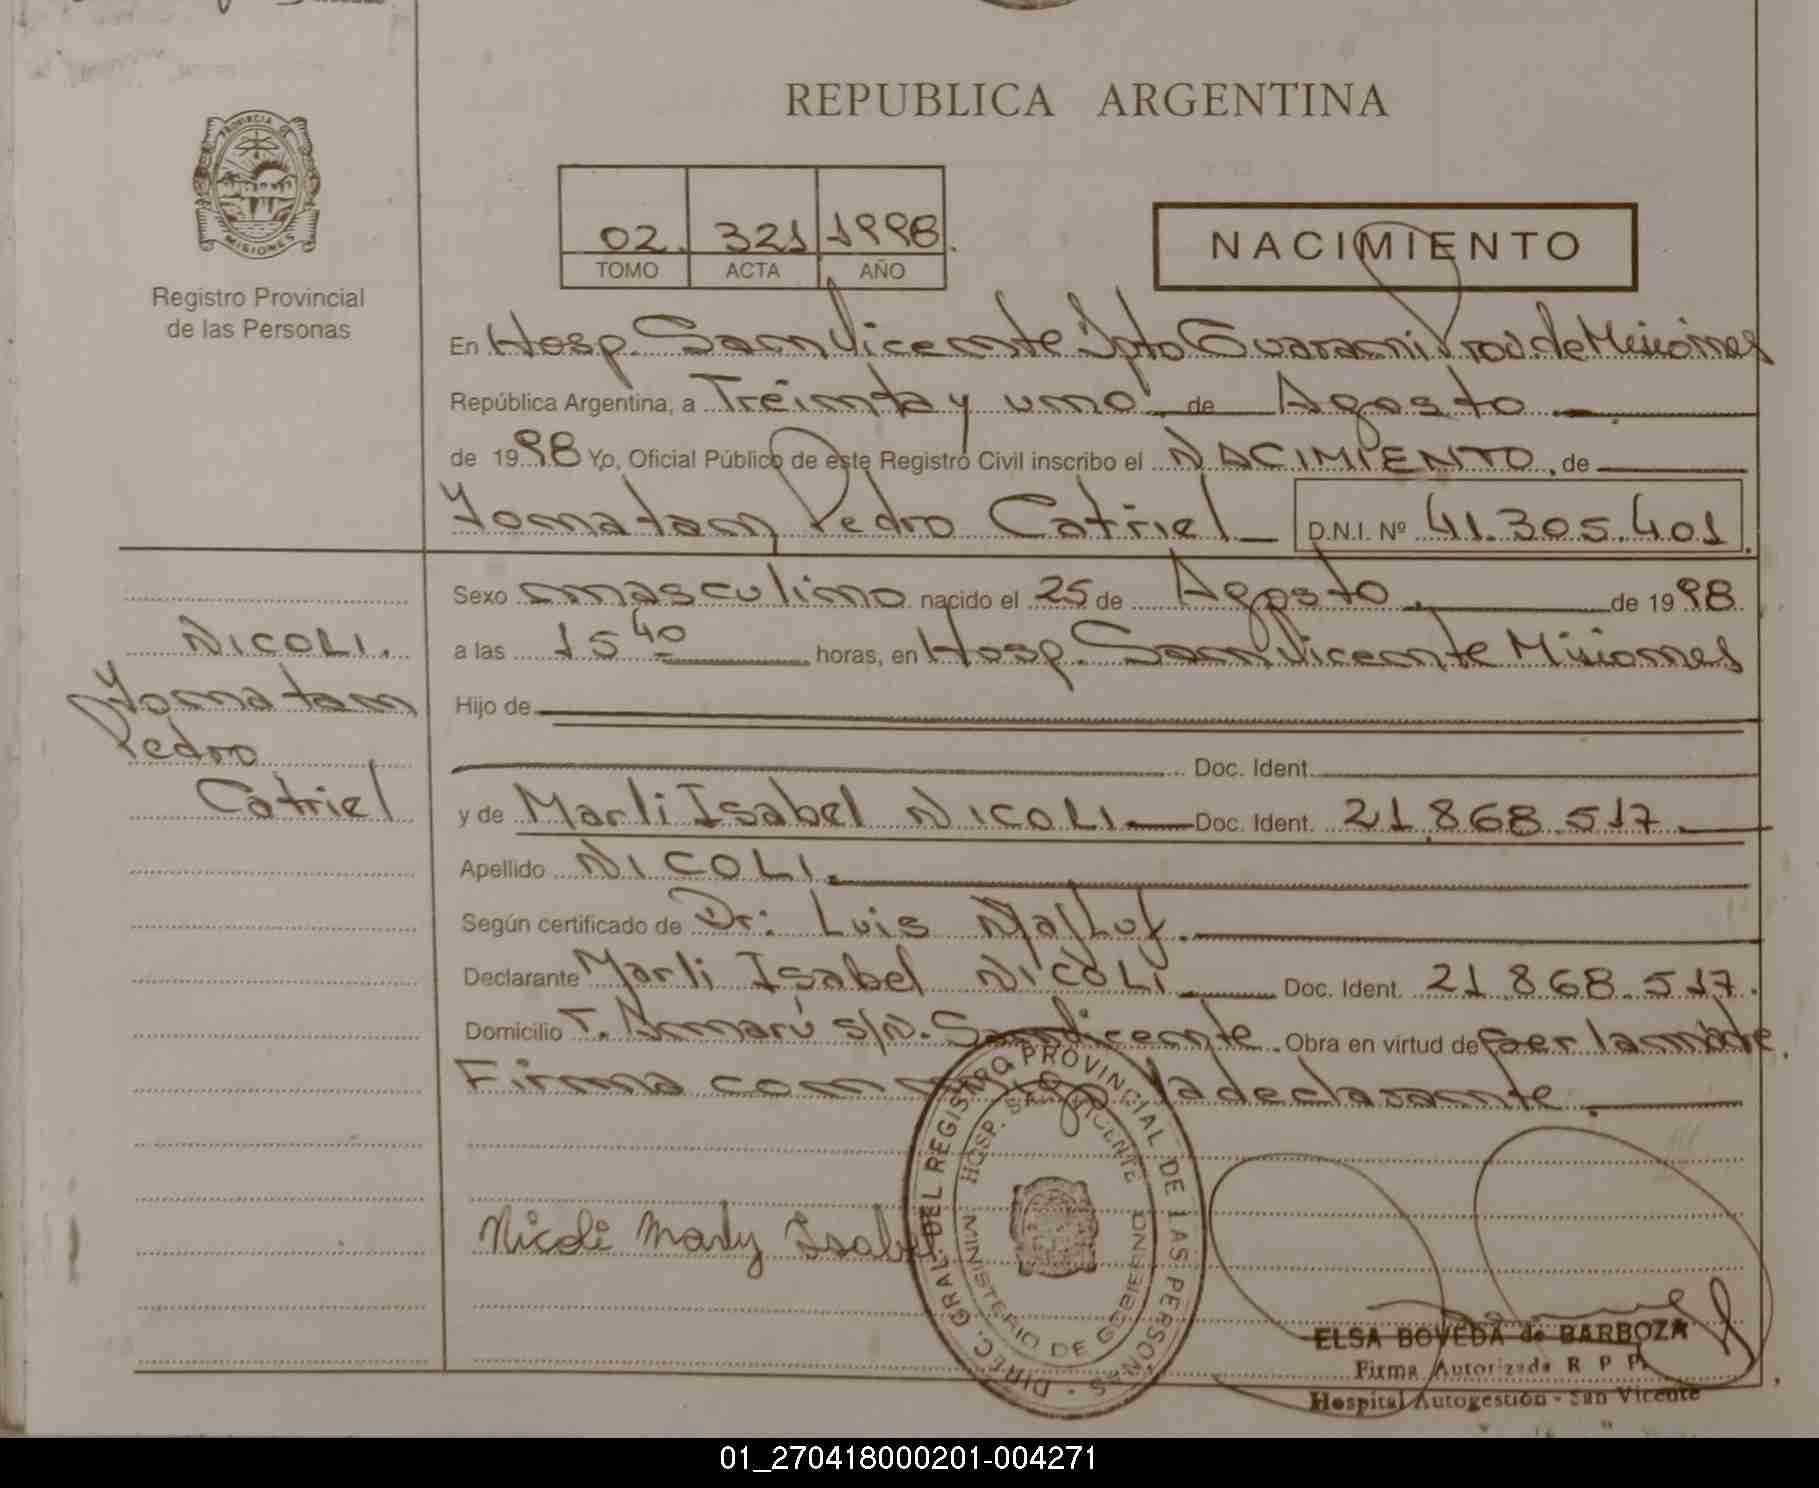 REPUBLICA ARGENTINA
PROVINCIA DE
MISIONES
Registro Provincial
de las Personas
02. 321 1998.
TOMO ACTA AÑO
NACIMIENTO
En Hosp. San Vicente Dpto Guarani Prov. de Misiones
República Argentina, a Treinta y uno de Agosto
de 1998 Yo, Oficial Público de este Registro Civil inscribo el NACIMIENTO, de
Yonatan Pedro Catriel D.N.I. Nº 41.305.401
Sexo masculino nacido el 25 de Agosto de 1998
NICOLI.
Yonatan
Pedro
Catriel
a las 15 40 horas, en Hosp. San Vicente Misiones
Hijo de
Doc. Ident.
y de Marli Isabel NICOLI Doc. Ident. 21.868.517
Apellido NICOLI.
Según certificado de Dr: Luis
Declarante Marli Isabel NICOLI Doc. Ident. 21.868.517.
Domicilio T. Amarú s/n. San Vicente. Obra en virtud de ser la madre.
Firma conmigo la declarante.
Nicoli Marly Isabel
DIREC. GRAL. DEL REGISTRO PROVINCIAL DE LAS PERSONAS
HOSP. SAN VICENTE
MINISTERIO DE GOBIERNO
ELSA BOVEDA de BARBOZA
Firma Autorizada R P P.
Hospital Autogestión - San Vicente
01_270418000201-004271